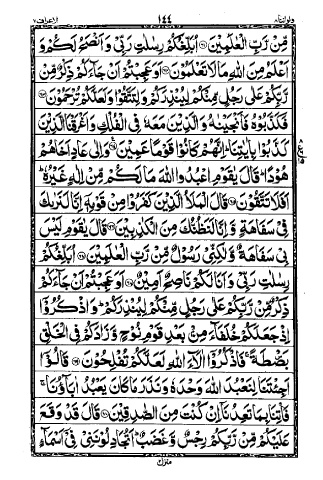 ولو اننا ٨ ١٤٤ الاعراف ٧
مِّنْ رَّبِّ الْعٰلَمِیْنَ ۝ اُبَلِّغُكُمْ رِسٰلٰتِ رَبِّیْ وَ اَنْصَحُ لَكُمْ وَ
اَعْلَمُ مِنَ اللّٰهِ مَا لَا تَعْلَمُوْنَ ۝ اَوَ عَجِبْتُمْ اَنْ جَآءَكُمْ ذِكْرٌ مِّنْ
رَّبِّكُمْ عَلٰی رَجُلٍ مِّنْكُمْ لِیُنْذِرَكُمْ وَ لِتَتَّقُوْا وَ لَعَلَّكُمْ تُرْحَمُوْنَ ۝
فَكَذَّبُوْهُ فَاَنْجَیْنٰهُ وَ الَّذِیْنَ مَعَهٗ فِی الْفُلْكِ وَ اَغْرَقْنَا الَّذِیْنَ
كَذَّبُوْا بِاٰیٰتِنَا ؕ اِنَّهُمْ كَانُوْا قَوْمًا عَمِیْنَ ۝ وَ اِلٰی عَادٍ اَخَاهُمْ
هُوْدًا ؕ قَالَ یٰقَوْمِ اعْبُدُوا اللّٰهَ مَا لَكُمْ مِّنْ اِلٰهٍ غَیْرُهٗ ؕ
اَفَلَا تَتَّقُوْنَ ۝ قَالَ الْمَلَاُ الَّذِیْنَ كَفَرُوْا مِنْ قَوْمِهٖۤ اِنَّا لَنَرٰىكَ
فِیْ سَفَاهَةٍ وَّ اِنَّا لَنَظُنُّكَ مِنَ الْكٰذِبِیْنَ ۝ قَالَ یٰقَوْمِ لَیْسَ
بِیْ سَفَاهَةٌ وَّ لٰكِنِّیْ رَسُوْلٌ مِّنْ رَّبِّ الْعٰلَمِیْنَ ۝ اُبَلِّغُكُمْ
رِسٰلٰتِ رَبِّیْ وَ اَنَا لَكُمْ نَاصِحٌ اَمِیْنٌ ۝ اَوَ عَجِبْتُمْ اَنْ جَآءَكُمْ
ذِكْرٌ مِّنْ رَّبِّكُمْ عَلٰی رَجُلٍ مِّنْكُمْ لِیُنْذِرَكُمْ ؕ وَ اذْكُرُوْۤا
اِذْ جَعَلَكُمْ خُلَفَآءَ مِنْۢ بَعْدِ قَوْمِ نُوْحٍ وَّ زَادَكُمْ فِی الْخَلْقِ
بَصْۜطَةً ۚ فَاذْكُرُوْۤا اٰلَآءَ اللّٰهِ لَعَلَّكُمْ تُفْلِحُوْنَ ۝ قَالُوْۤا
اَجِئْتَنَا لِنَعْبُدَ اللّٰهَ وَحْدَهٗ وَ نَذَرَ مَا كَانَ یَعْبُدُ اٰبَآؤُنَا ۚ
فَاْتِنَا بِمَا تَعِدُنَاۤ اِنْ كُنْتَ مِنَ الصّٰدِقِیْنَ ۝ قَالَ قَدْ وَقَعَ
عَلَیْكُمْ مِّنْ رَّبِّكُمْ رِجْسٌ وَّ غَضَبٌ ؕ اَتُجَادِلُوْنَنِیْ فِیْۤ اَسْمَآءٍ
منزل